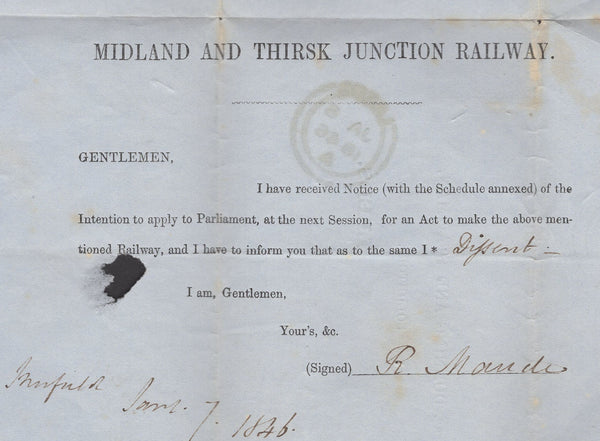 MIDLAND AND THIRSK JUNCTION RAILWAY.
GENTLEMEN,
I have received Notice (with the Schedule annexed) of the
Intention to apply to Parliament, at the next Session, for an Act to make the above men-
tioned Railway, and I have to inform you that as to the same I* Dissent —
I am, Gentlemen,
Your's, &c.
(Signed) R. Maude
Jany. 7. 1846.